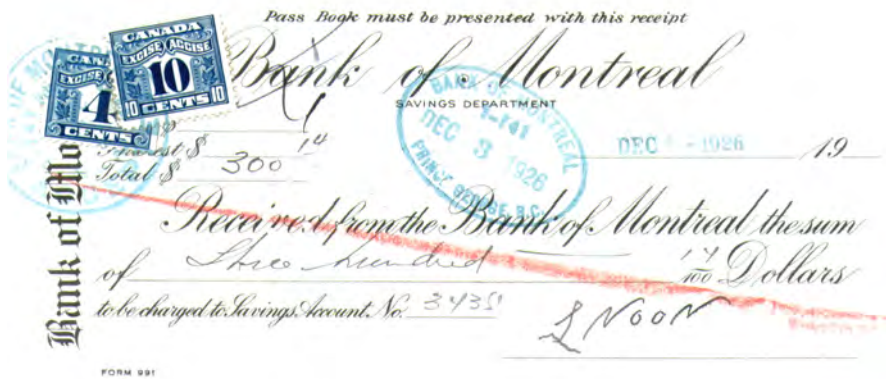 Pass Book must be presented with this receipt
Bank of Montreal
SAVINGS DEPARTMENT
CANADA
EXCISE ACCISE
10
10 CENTS 10
EXCISE
4
CENTS
BANK OF MONTREAL
DEC 3 1926
PRINCE GEORGE, B.C.
DEC - 1926 19
Interest $ 14
Total $ 300
Received from the Bank of Montreal the sum
of Three hundred 14/100 Dollars
to be charged to Savings Account No. 3435
L NOON
Bank of Mo
FORM 991